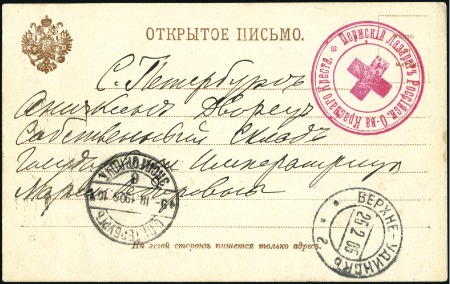 ОТКРЫТОЕ ПИСЬМО.
Пермскій Лазаретъ Россійск. О-ва Краснаго Креста.
С. Петербургъ
Аничковъ Дворецъ
Собственный Складъ
Императрицы
Маріи
С. ПЕТЕРБУРГЪ
III 1905
ВЕРХНЕ-УДИНСКЪ
25 2 05
На этой сторонѣ пишется только адресъ.